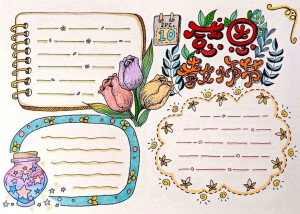 SPE.
10
感恩
教师节